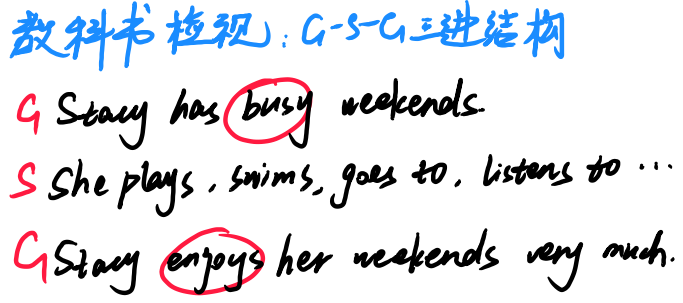 教科书检视：G-S-G三进结构
G Stacy has busy weekends.
S She plays, swims, goes to, listens to …
G Stacy enjoys her weekends very much.